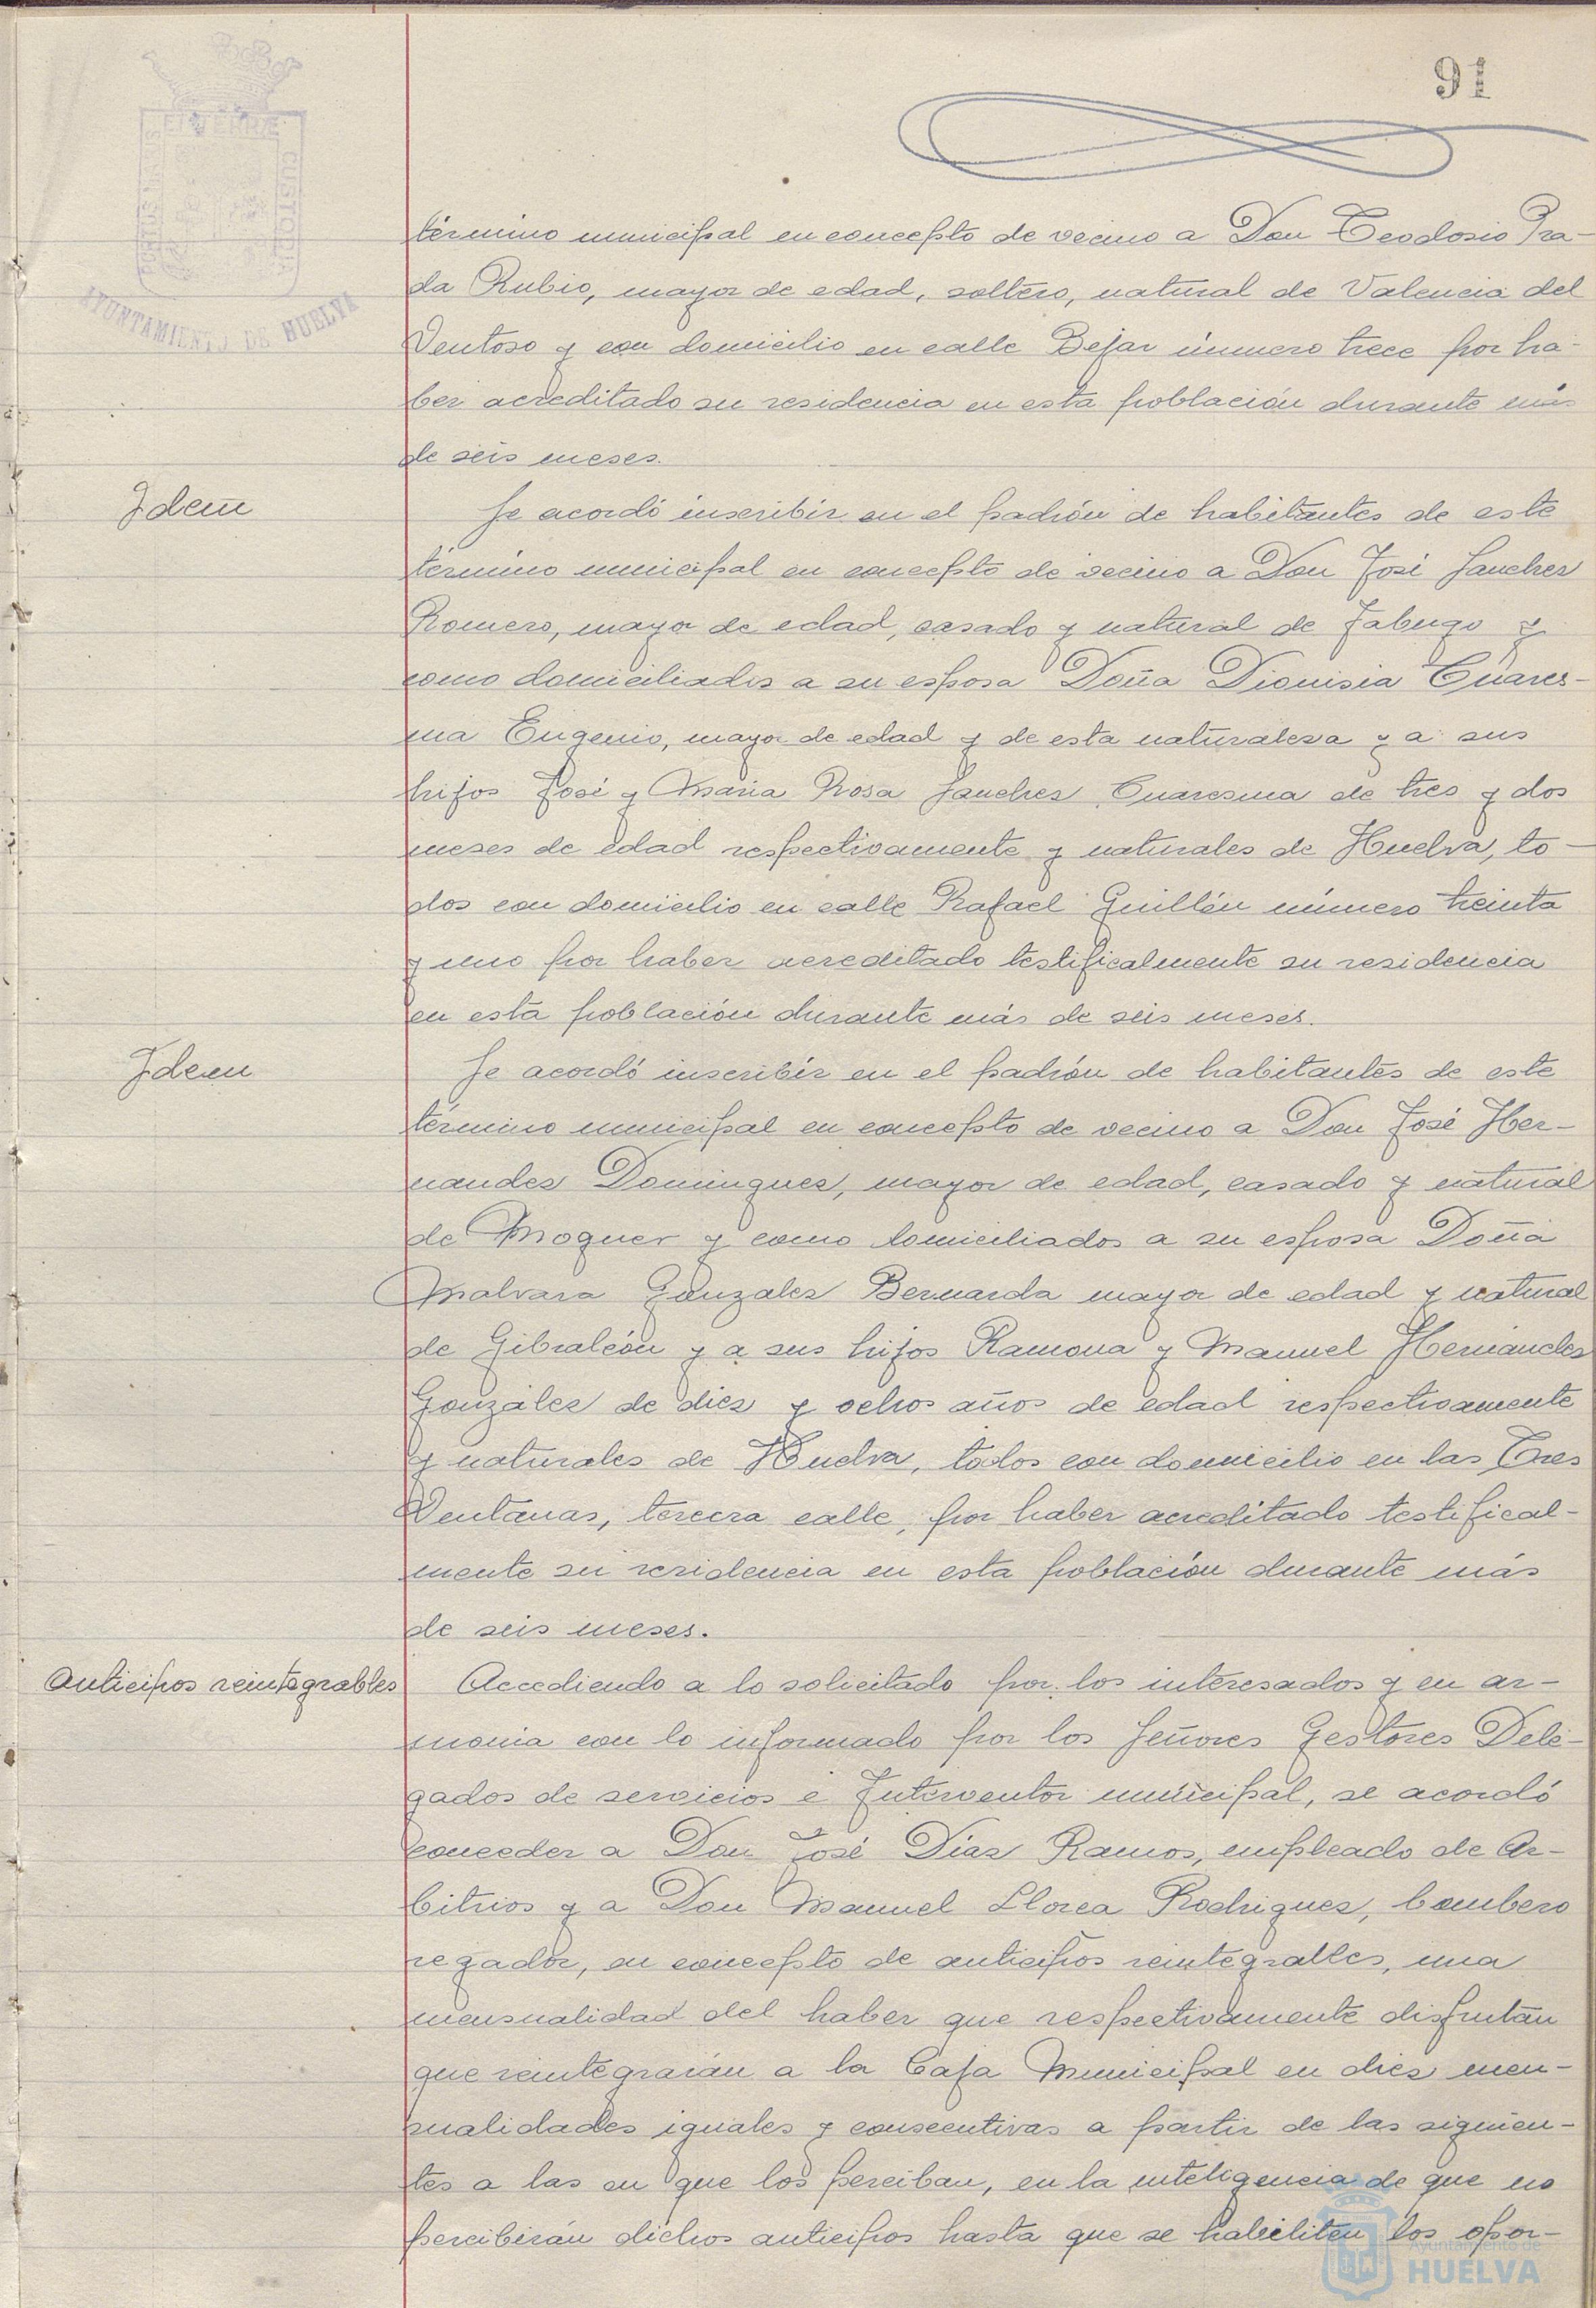 91
PORTUS MARIS
ET TERRÆ
CUSTODIA
AYUNTAMIENTO DE HUELVA
término municipal en concepto de vecino a Don Teodosio Pra-
da Rubio, mayor de edad, soltero, natural de Valencia del
Ventoso y con domicilio en calle Bejar número trece por ha-
ber acreditado su residencia en esta población durante más
de seis meses.
Idem
Se acordó inscribir en el padrón de habitantes de este
término municipal en concepto de vecino a Don José Sanchez
Romero, mayor de edad, casado y natural de Jabugo y
como domiciliados a su esposa Doña Dionisia Cuares-
ma Eugenio, mayor de edad y de esta naturaleza y a sus
hijos José y Maria Rosa Sanchez Cuaresma de tres y dos
meses de edad respectivamente y naturales de Huelva, to-
dos con domicilio en calle Rafael Guillén número treinta
y uno por haber acreditado testificalmente su residencia
en esta población durante más de seis meses.
Idem
Se acordó inscribir en el padrón de habitantes de este
término municipal en concepto de vecino a Don José Her-
nandez Dominguez, mayor de edad, casado y natural
de Moguer y como domiciliados a su esposa Doña
Malvara Gonzalez Bernarda mayor de edad y natural
de Gibraleón y a sus hijos Ramona y Manuel Hernandez
González de diez y ochos años de edad respectivamente
y naturales de Huelva, todos con domicilio en las Tres
Ventanas, tercera calle, por haber acreditado testifical-
mente su residencia en esta población durante más
de seis meses.
Anticipos reintegrables
Accediendo a lo solicitado por los interesados y en ar-
monia con lo informado por los Señores Gestores Dele-
gados de servicios e Interventor municipal, se acordó
conceder a Don José Díaz Ramos, empleado de Ar-
bitrios y a Don Manuel Llorca Rodriguez, bombero
regador, en concepto de anticipos reintegrables, una
mensualidad del haber que respectivamente disfrutan
que reintegrarán a la Caja Municipal en diez men-
sualidades iguales y consecutivas a partir de las siguien-
tes a las en que los perciban, en la inteligencia de que no
percibirán dichos anticipos hasta que se habiliten los opor-
Ayuntamiento de
HUELVA